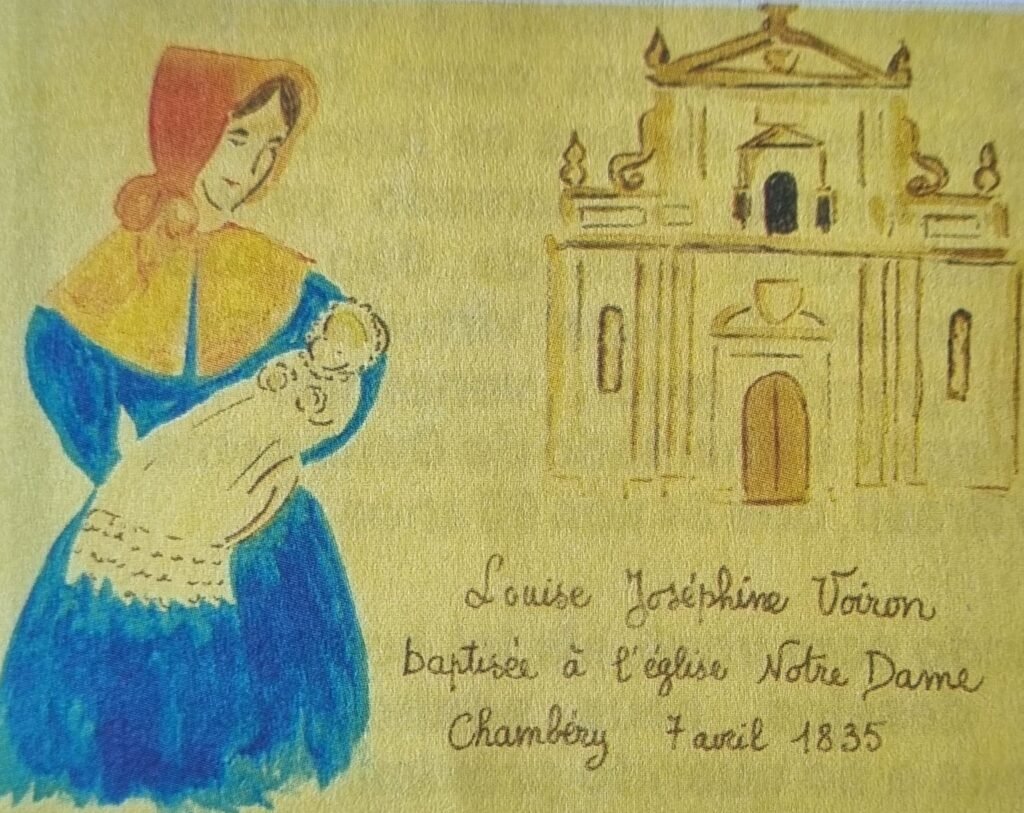 Louise Joséphine Voiron
baptisée à l'église Notre Dame
Chambéry 7 avril 1835